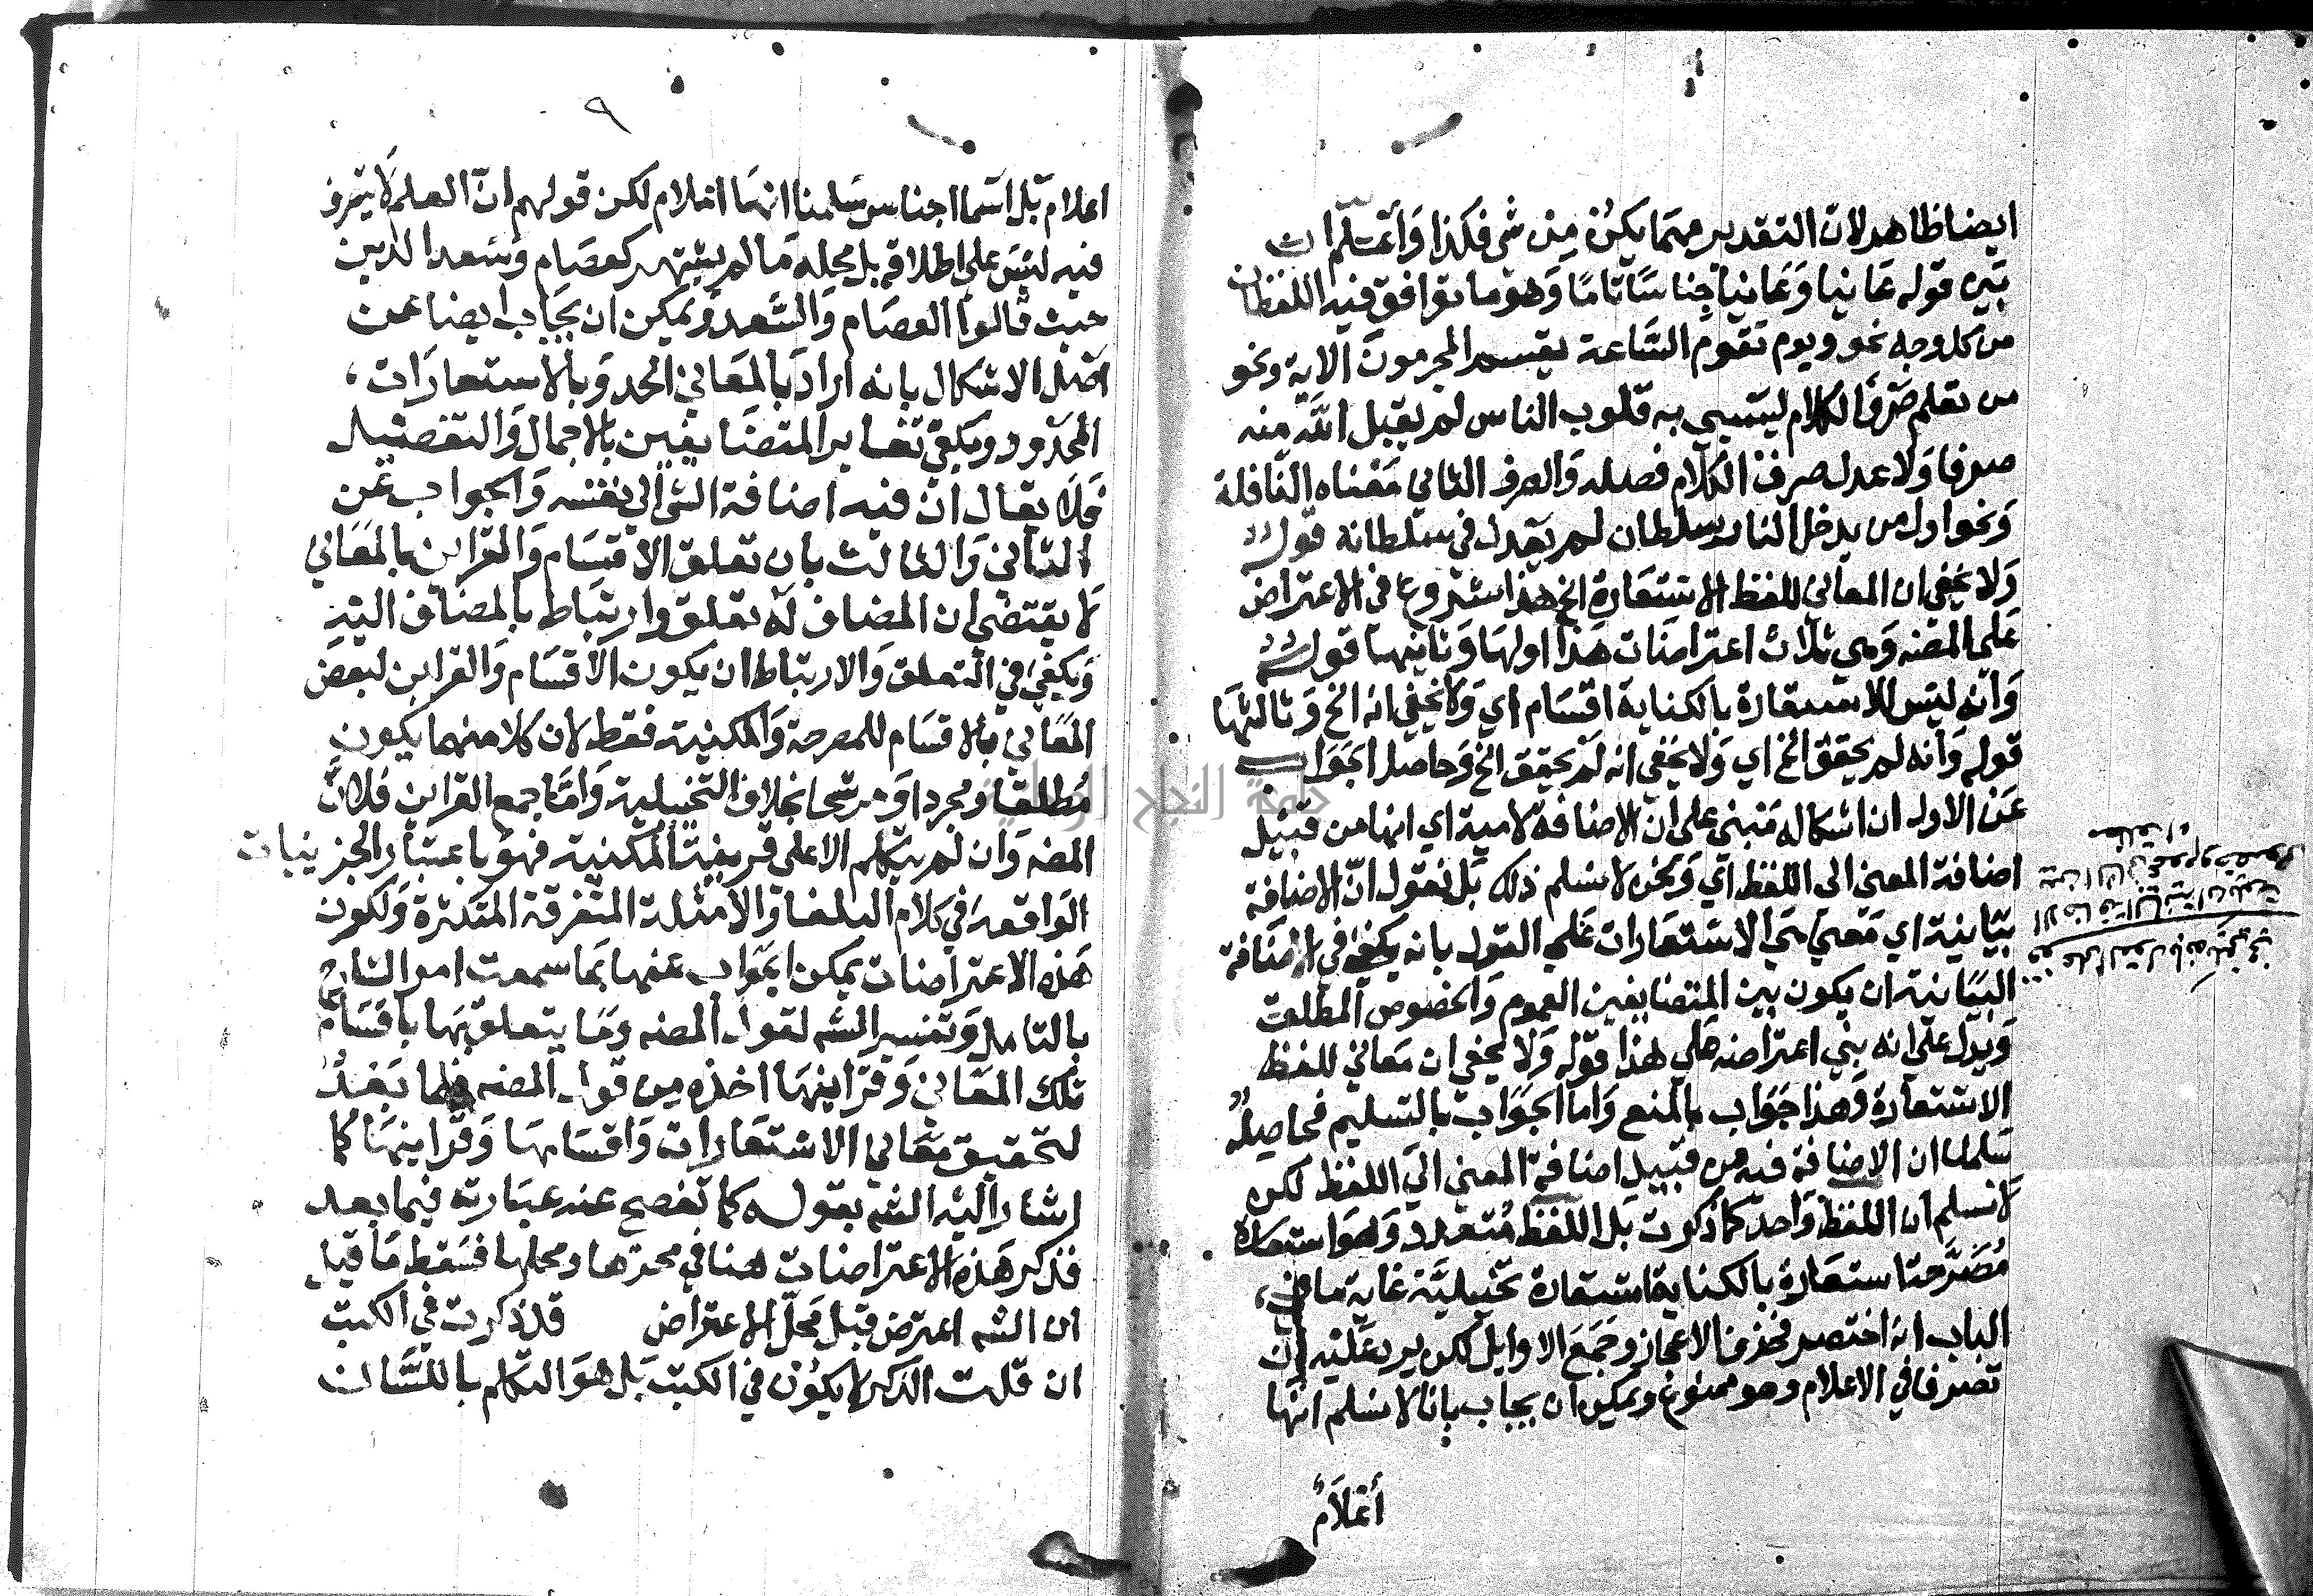 ايضا ظاهر لان التقدير مهما يكن من شي فكذا واعلم ان
بين قوله عانيا وعانيا جناسا تاما وهو ما توافق فيه اللفظان
من كل وجه نحو ويوم تقوم الساعة يقسم المجرمون الاية ونحو
من تعلم صرف الكلام ليستبي به قلوب الناس لم يقبل الله منه
صرفا ولا عدلا صرف الكلام فضله والصرف الثاني معناه النافلة
ونحو اول من يدخل النار سلطان لم يعدل في سلطانه قوله
ولا يخفى ان المعاني للفظ الاستعارة الخ هذا شروع في الاعتراض
على المصنه وهي ثلاث اعتراضات هذا اولها وثانيها قوله
وانه ليس للاستعارة بالكناية اقسام اي ولا يخفي انه الخ وثالثها
قوله وانه لم يحقق الخ اي ولا يخفي انه لم يحقق الخ وحاصل الجواب
عن الاول ان اشكاله مبني على ان الاضافة لامية اي انها من قبيل
اضافة المعنى الى اللفظ اي ونحن لا نسلم ذلك بل نقول ان الاضافة
بيانية اي معني هي الاستعارات علي القول بانه يكفي في الاضافة
البيانية ان يكون بين المتضايفين العموم والخصوص المطلق
ويدل علي انه بني اعتراضه علي هذا قوله ولا يخفي ان معاني للفظ
الاستعارة وهذا جواب بالمنع واما الجواب بالتسليم فحاصله
سلمنا ان الاضافة فيه من قبيل اضافة المعني الي اللفظ لكن
لا نسلم ان اللفظ واحد كما ذكرت بل اللفظ متعدد وهو استعارة
مصرحة استعارة بالكناية استعارة تخييلية غاية ما في
الباب انه اختصر فحذف الاعجاز وجمع الاوايل لكن يرد عليه ان
تصرفا في الاعلام وهو ممنوع ويمكن ان يجاب بانا لا نسلم انها
أعلام
٩
اعلام بل اسما اجناس سلمنا انها اعلام لكن قولهم ان العلم لا يتصرف
فيه ليس على اطلاقه بل محله ما لم يشتهر كعصام وسعد الدين
حيث قالوا العصام والسعد ويمكن ان يجاب ايضا عن
اصل الاشكال بانه اراد بالمعاني الحد وبالاستعارات
المحدود ويكفي تغاير المتضايفين بالاجمال والتفصيل
فلا يقال ان فيه اضافة الشي الى نفسه والجواب عن
الثاني والثالث بان تعلق الاقسام والقراين بالمعاني
لا يقتضي ان المضاف له تعلق وارتباط بالمضاف اليه
ويكفي في التعلق والارتباط ان يكون الاقسام والقراين لبعض
المعاني فالاقسام للمصرحة والمكنية فقط لان كلا منهما يكون
مطلقا ومجردا ومرشحا بخلاف التخييلية واما جمع القراين فلان
المصنه وان لم يتكلم الا على قرينة المكنية فهو باعتبار الجزييات
الواقعة في كلام البلغا والامثلة المتفرقة المتكثرة ولكون
هذه الاعتراضات يمكن الجواب عنها بما سمعت امر الشارح
بالتامل وتفسير الشه لقول المصنه وما يتعلق بها باقسام
تلك المعاني وقراينها اخذه من قول المصنه فيما بعد
لتحقيق معاني الاستعارات واقسامها وقراينها كما
اشار اليه الشه بقوله كما تفصح عنه عبارته فيما بعد
فذكر هذه الاعتراضات هنا في محزها ومحلها فسقط ما قيل
ان الشه اعترض قبل محل الاعتراض قد ذكرت في الكتب
ان قلت الذكر لا يكون في الكتب بل هو التكلم باللسان